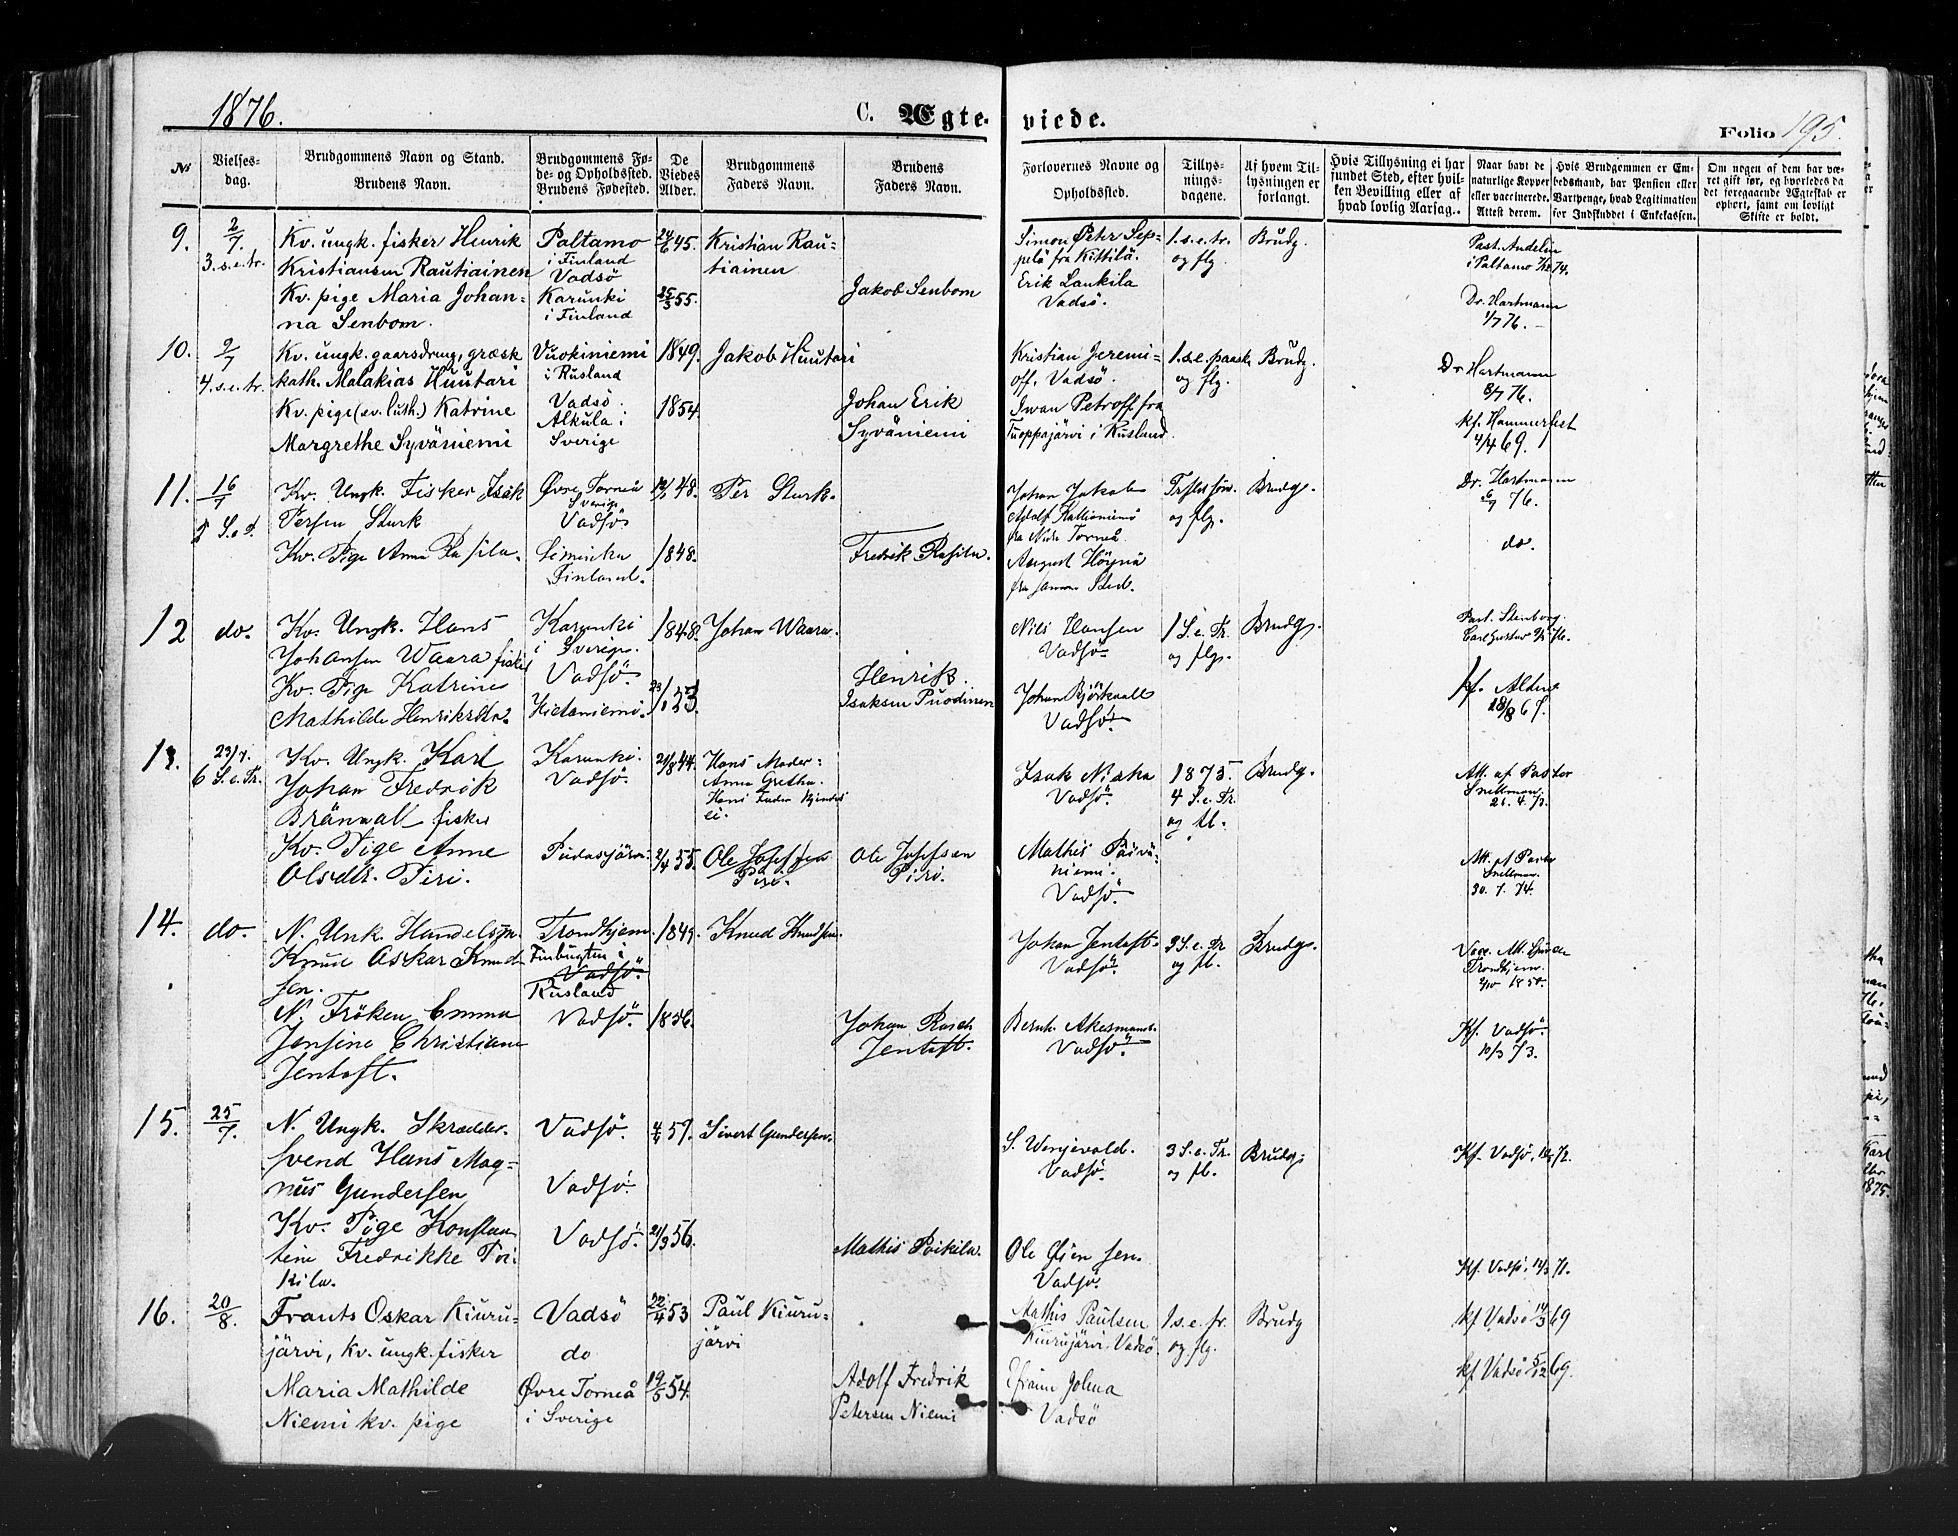 1876.
C. Ægte-
viede.
Folio 195.
No
Vielses-
dag.
Brudgommens Navn og Stand.
Brudens Navn.
Brudgommens Fø-
de- og Opholdssted.
Brudens Fødested.
De
Viedes
Alder.
Brudgommens
Faders Navn.
Brudens
Faders Navn.
Forlovernes Navne og
Opholdssted.
Tillys-
nings-
dagene.
Af hvem Til-
lysningen er
forlangt.
Hvis Tillysning ei har
fundet Sted, efter hvil-
ken Bevilling eller af
hvad lovlig Aarsag.
Naar havt de
naturlige Kopper
eller vaccinerede.
Attest derom.
Hvis Brudgommen er Em-
bedsmand, har Pension eller
Vartpenge, hvad Legitimation
for Indskuddet i Enkekassen.
Om nogen af dem har væ-
ret gift før, og hvorledes da
det foregaaende Ægteskab er
ophørt, samt om lovligt
Skifte er holdt.
9.
2/7.
3. s. e. tr.
Kv. ungk. fisker Henrik
Kristiansen Rautiainen
Kv. pige Maria Johan-
na Senbom.
Paltamo
i Finland
Vadsö
Karunki
i Finland
24/6 45.
25/3 55.
Kristian Rau-
tiainen
Jakob Senbom
Simon Peter Sep-
pelä fra Kittilä.
Erik Lankila
Vadsö.
1. s. e. tr.
og flg.
Brudg.
Past. Andelin
i Paltamo 74.
Dr. Hartmann
1/7 76.
10.
9/7
4. s. e. tr.
Kv. ungk. gaarsdreng, græsk
kath. Malakias Huutari
Kv. pige (ev. luth.) Katrine
Margrethe Syväniemi
Vuokiniemi
i Rusland
Vadsö.
Alkula i
Sverige
1849.
1854.
Jakob Huutari
Johan Erik
Syväniemi
Kristian Jeremi-
off, Vadsö.
Iwan Petroff fra
Tuoppajärvi i Rusland.
1. s. e. paaske
og flg.
Brudg.
Dr. Hartmann
8/7 76.
kf. Hammerfest
4/4 69.
11.
16/7
5 S. e. T.
Kv. Ungk. Fisker Isak
Persen Sturk
Kv. Pige Anna Rasila.
Øvre Torneå
Sverige
Vadsö
Liminka
Finland.
48.
1848.
Per Sturk.
Fredrik Rasila.
Johan Jakob
Adolf
fra Torneå.
August
fra samme Sted.
og flg.
Brudg.
Dr. Hartmann
76.
do.
12
do.
Kv. Ungk. Hans
Johansen Waara fisker
Kv. Pige Katrine
Mathilde Henriksdtr.
Karunki
i Sverige.
Vadsö.
Hietaniemi.
1848.
53.
Johan Waara.
Henrik
Isaksen Puodinen
Nils Hansen
Vadsö.
Johan Björkvall
Vadsö.
1 S. e. Tr.
og flg.
Brudg.
Past. Stenborg
Carl Gustav 76.
kf. Alten
18/8 67.
13.
23/7.
6 S. e. Tr.
Kv. Ungk. Karl
Johan Fredrik
Brännall fisker
Kv. Pige Anne
Olsdtr. Piri.
Karunki.
Vadsö.
Pudasjärvi.
21/8 44.
2/4 55.
Hans Moder:
Anna Gretha.
Hans Fader kjendes
ei.
Ole Josefsen
Piri.
Ole Josefsen
Piri.
Isak Niska
Vadsö.
Mathis Päivä-
niemi.
Vadsö.
1875.
4 S. e. Tr.
og fl.
Brudg.
Att. af Pastor
Snellman.
21. 4. 73.
Att. af Pastor
Snellman.
30. 7. 74.
14.
do.
N. Unk. Handelsm.
Knud Oskar Knud-
sen.
N. Fröken Emma
Jensine Christiane
Jentoft.
Trondhjem.
Finbugten i
Vadsö.
Rusland
Vadsö.
1849.
1856.
Knud Knudsen.
Johan Rasch
Jentoft.
Johan Jentoft.
Vadsö.
Bernh. Akermand.
Vadsö.
3 S. e. Tr
og fl.
Brudg.
Vacc. Att.
Trondhjem.
1850.
Kf. Vadsö.
10/3 73.
15.
25/7.
N. Ungk. Skrædder.
Svend Hans Mag-
nus Gundersen
Kv. Pige Konstan-
tine Fredrikke Poi-
kila.
Vadsö.
Vadsö.
Vadsö.
4/6 57.
21/9 56.
Sivert Gundersen.
Mathis Poikila.
S. Wenjevald.
Vadsö.
Ole Øien sen.
Vadsö.
3 S. e. Tr.
og fl.
Brudg.
Kf. Vadsö, 72.
Kf. Vadsö, 71.
16.
20/8.
Frants Oskar Kiuru-
järvi, Kv. ungk. fisker
Maria Mathilde
Niemi kv. pige
Vadsö
do
Øvre Torneå
i Sverige
22/4 53
19/5 54.
Paul Kiuru-
järvi
Adolf Fredrik
Petersen Niemi
Mathis Paulsen
Kiurujärvi, Vadsö.
Efraim Jolma
Vadsö
1. s. e. tr.
og flg.
Brudg
kf Vadsö 14/3 69
kf Vadsö 5/12 69.